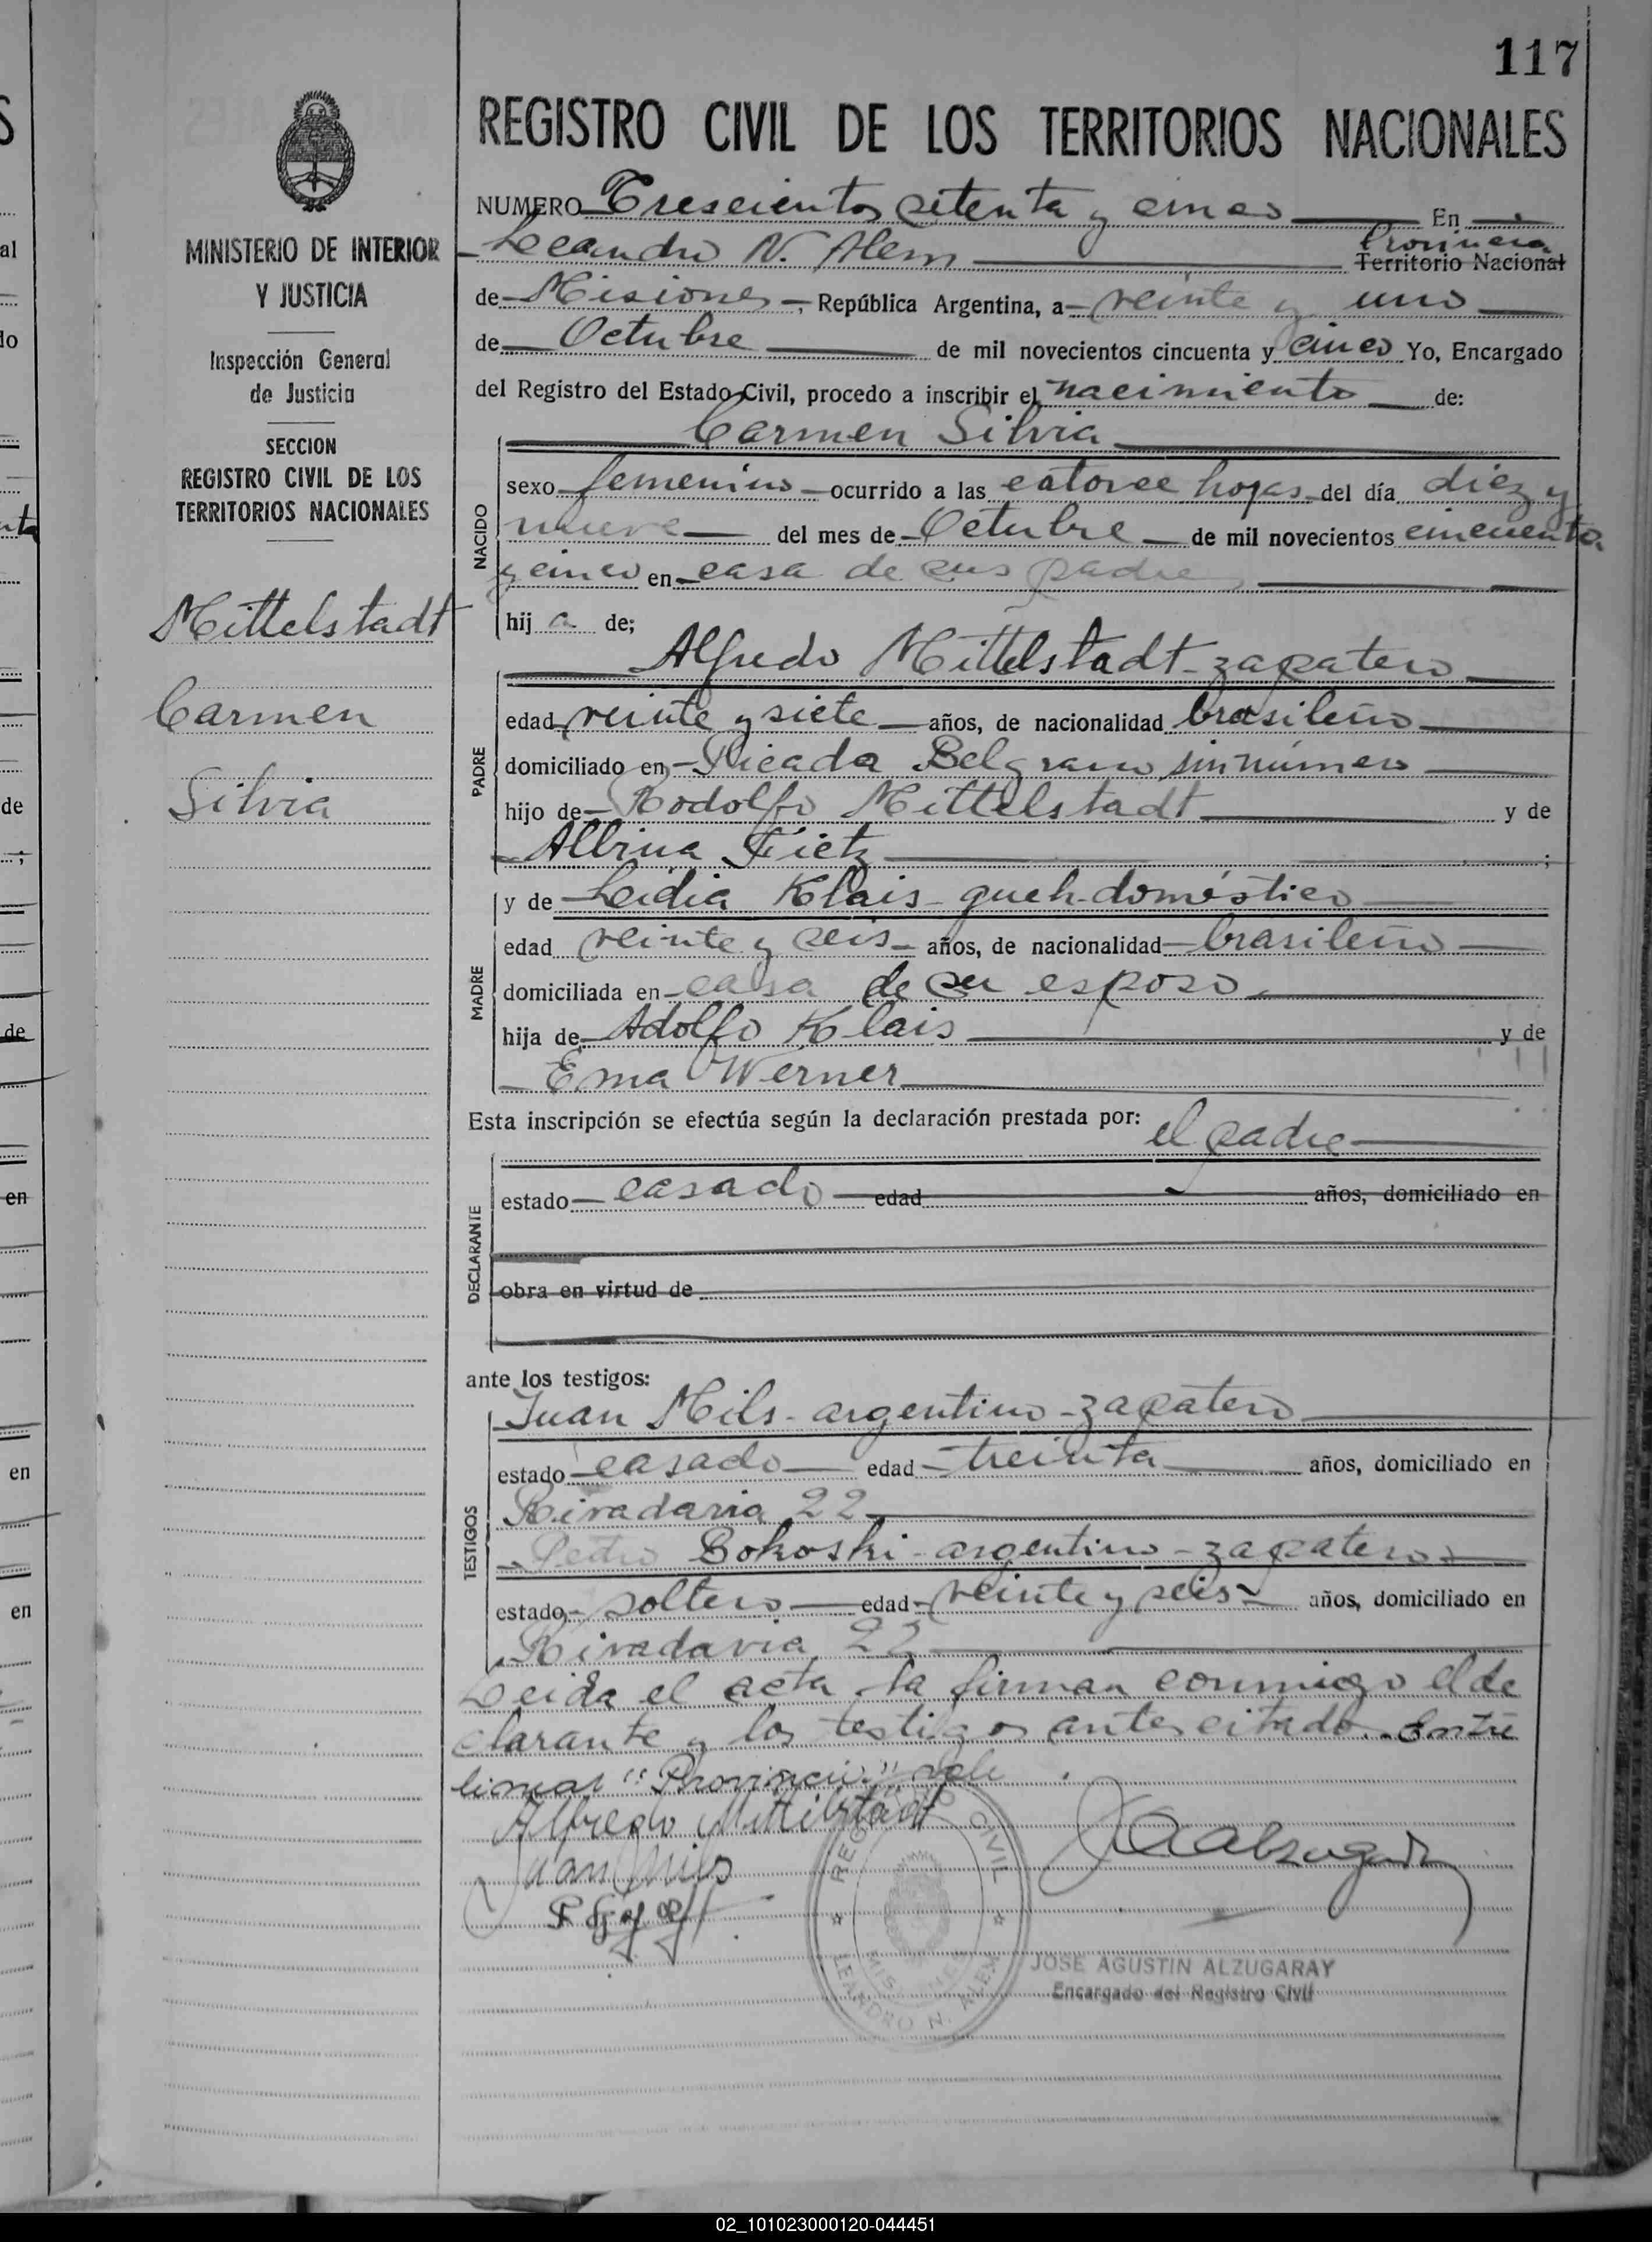 117
REGISTRO CIVIL DE LOS TERRITORIOS NACIONALES
MINISTERIO DE INTERIOR
Y JUSTICIA
Inspección General
de Justicia
SECCION
REGISTRO CIVIL DE LOS
TERRITORIOS NACIONALES
Mittelstadt
Carmen
Silvia
NUMERO Trescientos setenta y cinco En
Leandro N. Alem Provincia Territorio Nacional
de Misiones, República Argentina, a veinte y uno
de Octubre de mil novecientos cincuenta y cinco Yo, Encargado
del Registro del Estado Civil, procedo a inscribir el nacimiento de:
Carmen Silvia
NACIDO
sexo femenino ocurrido a las catorce horas del día diez y
nueve del mes de Octubre de mil novecientos cincuenta
y cinco en casa de sus padres
hija de;
Alfredo Mittelstadt-zapatero
PADRE
edad veinte y siete años, de nacionalidad brasileño
domiciliado en Picada Belgrano sin número
hijo de Rodolfo Mittelstadt y de
Albina Fietz ;
y de Leidia Klais- queh-doméstico
MADRE
edad veinte y seis años, de nacionalidad brasileño
domiciliada en casa de su esposo
hija de Adolfo Klais y de
Ema Werner
Esta inscripción se efectúa según la declaración prestada por: el padre
DECLARANTE
estado casado edad años, domiciliado en
obra en virtud de
ante los testigos:
Juan Mils- argentino-zapatero
TESTIGOS
estado casado edad treinta años, domiciliado en
Rivadavia 22
Pedro Bokoski- argentino-zapatero
estado soltero edad veinte y seis años, domiciliado en
Rivadavia 22
Leida el acta la firman conmigo el de
clarante y los testigos antes citado. Entre
lineas "Provincia" vale
Alfredo Mittelstadt
Juan Mils
REGISTRO CIVIL
MISIONES
LEANDRO N. ALEM
JOSE AGUSTIN ALZUGARAY
Encargado del Registro Civil
02_101023000120-044451